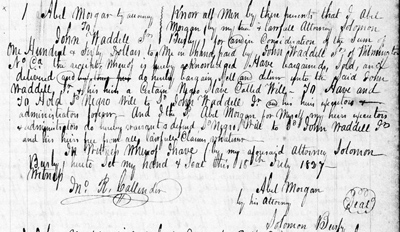 Abel Morgan by attorney } Know all Men by these presents that I Abel
To } Morgan by my true & lawfull Attorney Solomon
John Waddell Sr } for & in Consideration of the Sum of
One Hundred & Sixty Dollars to Me in hand paid John Waddell Sr of Wilmington
No Ca the receipt Whereof is hereby acknowledged Have bargained, Sold, and
delivered and do hereby bargain Sell and deliver unto the Said John
Waddell Sr & his heirs a Certain Negro Slave Called Will To Have and
To Hold Sd Negro Will to Sd John Waddell Sr his heirs executors &
administrators forever And I the Sd Abel Morgan for Myself my heirs executors
& administrators do hereby warrant & defend Sd Negro Will to Sd John Waddell Sr
and his heirs free from all lawfull Claims whatever
In Witness Whereof I have by my appointed Attorney Solomon
hereunto Set my hand & Seal this July 1837
Witness
Jno. R. Callender
Abel Morgan
by his attorney
Seal
Solomon